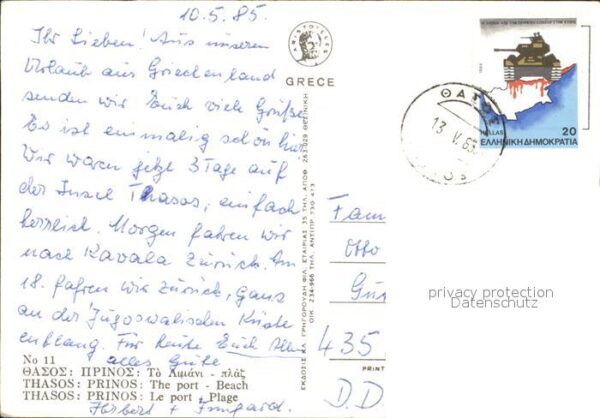 10.5.85.
Ihr Lieben! Aus unserem
Urlaub aus Griechenland
senden wir Euch viele Grüße.
Es ist einmalig schön hier.
Wir waren jetzt 3 Tage auf
der Insel Thasos, einfach
herrlich. Morgen fahren wir
nach Kavala zurück. Am
18. fahren wir zurück, ganz
an der Jugoswalischen Küste
entlang. Für heute Euch allen
alles Gute
Herbert + Irmgard.
No 11
ΘΑΣΟΣ: ΠΡΙΝΟΣ: Τὸ Λιμάνι - πλὰζ
THASOS: PRINOS: The port - Beach
THASOS: PRINOS: Le port - Plage
GREECE
ΕΚΔΟΣΙΣ ΚΛ. ΓΡΗΓΟΡΟΥΔΗ ΦΙΛ. ΕΤΑΙΡΙΑΣ 35 ΤΗΛ. ΑΠΟΘ. 263.029 ΘΕΣ/ΝΙΚΗ
ΟΙΚ. 234-966 ΤΗΛ. ΑΝΤΙΠΡ. 730-473
HELLAS
20
ΕΛΛΗΝΙΚΗ ΔΗΜΟΚΡΑΤΙΑ
ΘΑΣ
13 V 85
ΟΣ
Fam
Otto
435
PRINT
D.D
privacy protection
Datenschutz